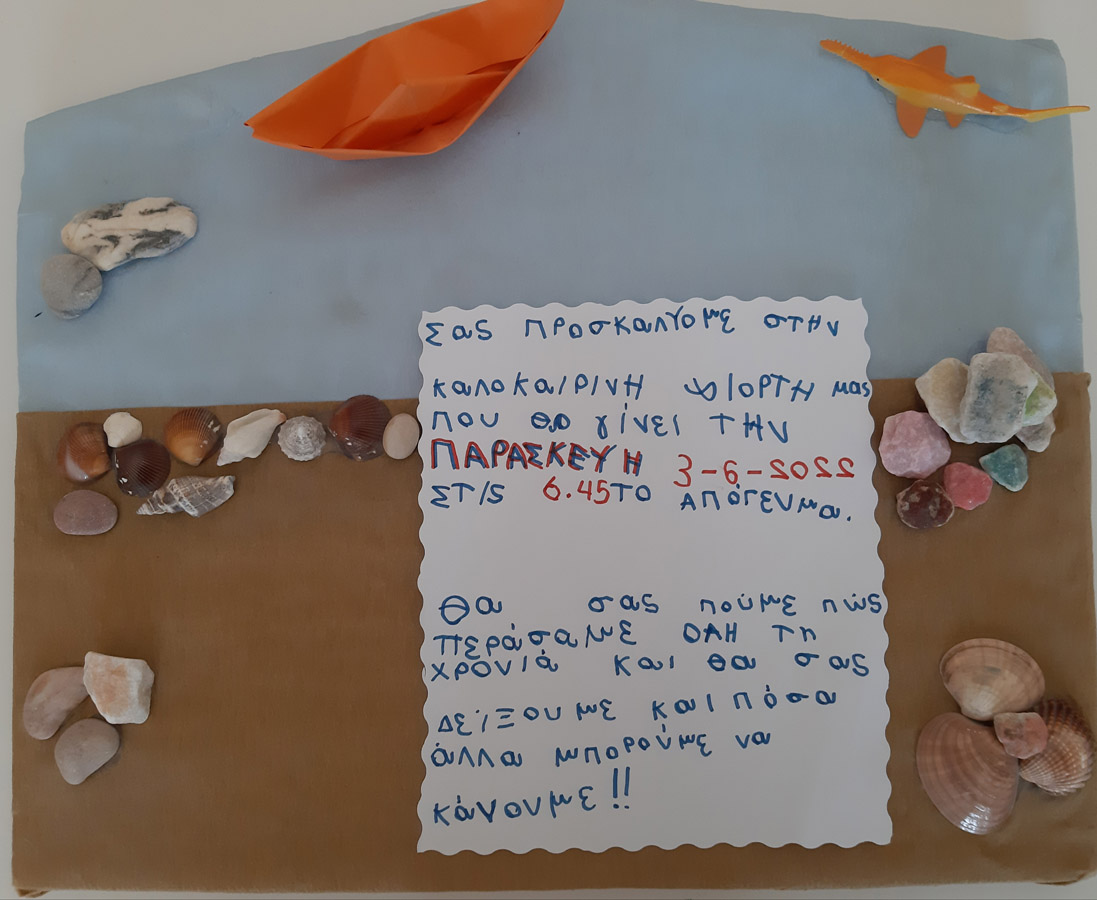 Σας ΠΡΟσκαλΥΟμε στην
καλοκαιρινΗ φιορτη μας
που θα γίνει την
ΠΑΡΑΣΚΕΥΗ 3-6-2022
ΣΤις 6.45 ΤΟ απόγευμα.
Θα σας πούμε πώς
περάσαμε όλη τη
χρονιά και θα σας
δείξουμε και πόσα
άλλα μπορούμε να
κάνουμε!!